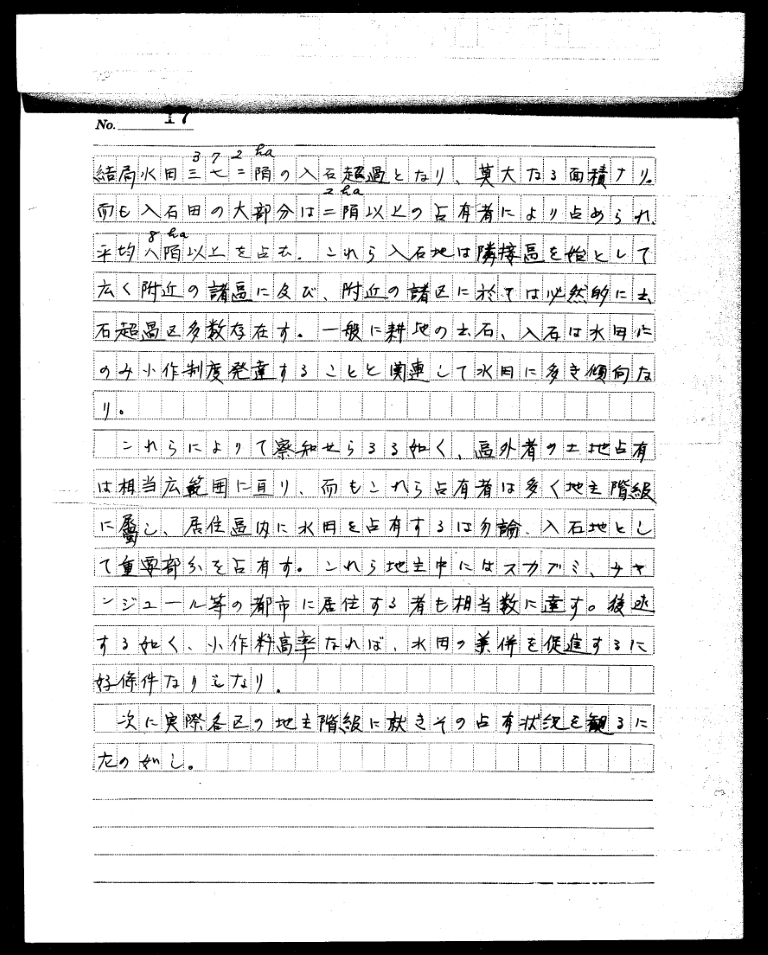 No. 17
3 7 2 ha
結局水田三七二陌の入石超過となり、莫大なる面積ナリ。
2 ha
而も入石田の大部分は二陌以上の占有者により占められ、
8 ha
平均八陌以上を占む。これら入石地は隣接區を始として
広く附近の諸區に及び、附近の諸区に於ては必然的に出
石超過区多数存在す。一般に耕地の出石、入石は水田に
のみ小作制度発達することと関連して水田に多き傾向な
り。
これらによりて察知せらるる如く、區外者の土地占有
は相当広範囲に亘り、而もこれら占有者は多く地主階級
に屬し、居住區内に水田を占有するは勿論、入石地とし
て重要部分を占有す。これら地主中にはスカブミ、チヤ
ンジュール等の都市に居住する者も相当数に達す。後述
する如く、小作料高率なれば、水田の兼併を促進するに
好條件なりしなり。
次に実際各区の地主階級に就きその占有状況を観るに
左の如し。